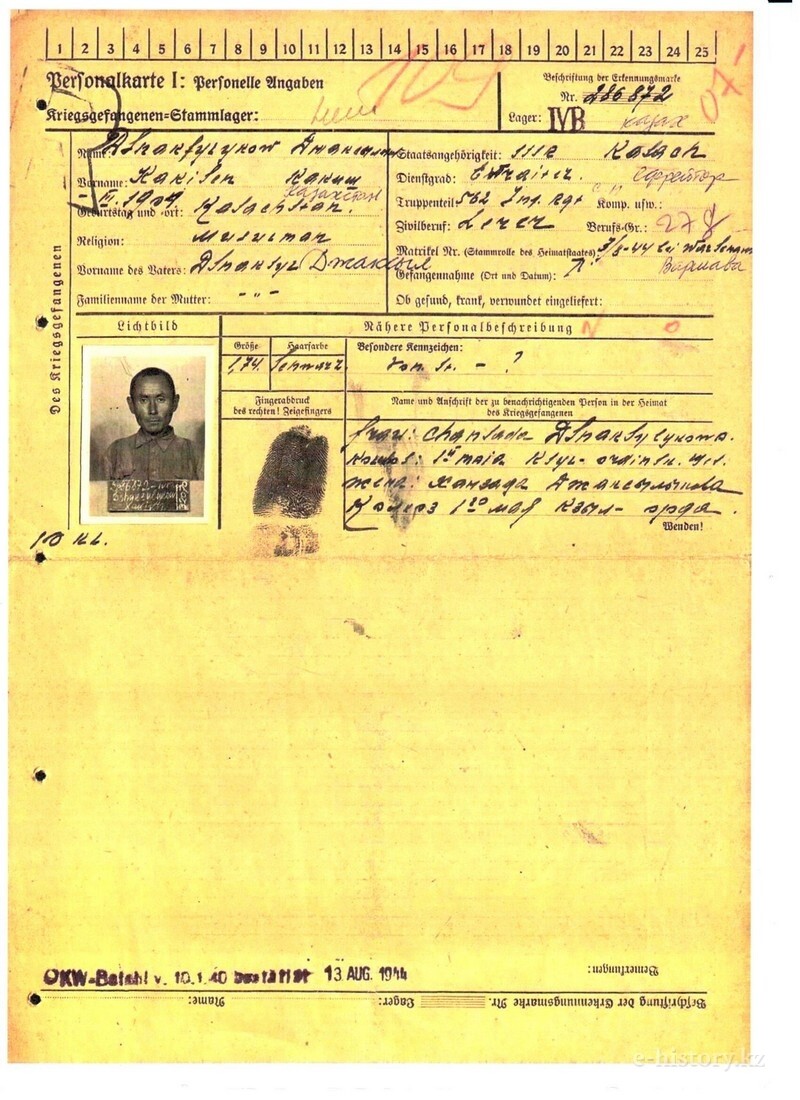 1 2 3 4 5 6 7 8 9 10 11 12 13 14 15 16 17 18 19 20 21 22 23 24 25
Personalkarte I: Personelle Angaben
109
Beschriftung der Erkennungsmarke
Nr. 286872
Kriegsgefangenen=Stammlager:
Lager: IVB
казах
Des Kriegsgefangenen
Name:
Staatsangehörigkeit: Kasach
Vorname: Kakisch Какиш
Dienstgrad: ефрейтор
1909 Казахстан
Geburtstag und =ort: Kasachstan.
Truppenteil: 562 Inf. Rgt Komp. usw.:
Religion: Musulman
Zivilberuf: Lerer Berufs=Gr.: 278
Matrikel Nr. (Stammrolle des Heimatstaates):
Vorname des Vaters: Джаксыл
Gefangennahme (Ort und Datum): 7/8-44 bei Warschau
Варшава
Familienname der Mutter: - „ -
Ob gesund, krank, verwundet eingeliefert:
Lichtbild
Nähere Personalbeschreibung
Größe Haarfarbe Besondere Kennzeichen:
1,74. Schwarz. ?
Fingerabdruck
des rechten! Zeigefingers
Name und Anschrift der zu benachrichtigenden Person in der Heimat
des Kriegsgefangenen
frau: Chansada
maia
жена: Ханзада
Колхоз 1го мая Кзыл-орда.
Wenden!
OKW-Befehl v. 10.1.40 bestätigt 13 AUG. 1944
Bemerkungen:
Beschriftung der Erkennungsmarke Nr. Lager: Name:
e-history.kz